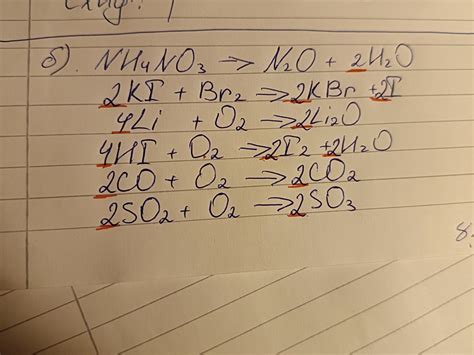 б). NH₄NO₃ → N₂O + 2H₂O
2KI + Br₂ → 2KBr + 2I
4Li + O₂ → 2Li₂O
4HI + O₂ → 2I₂ + 2H₂O
2CO + O₂ → 2CO₂
2SO₂ + O₂ → 2SO₃
8